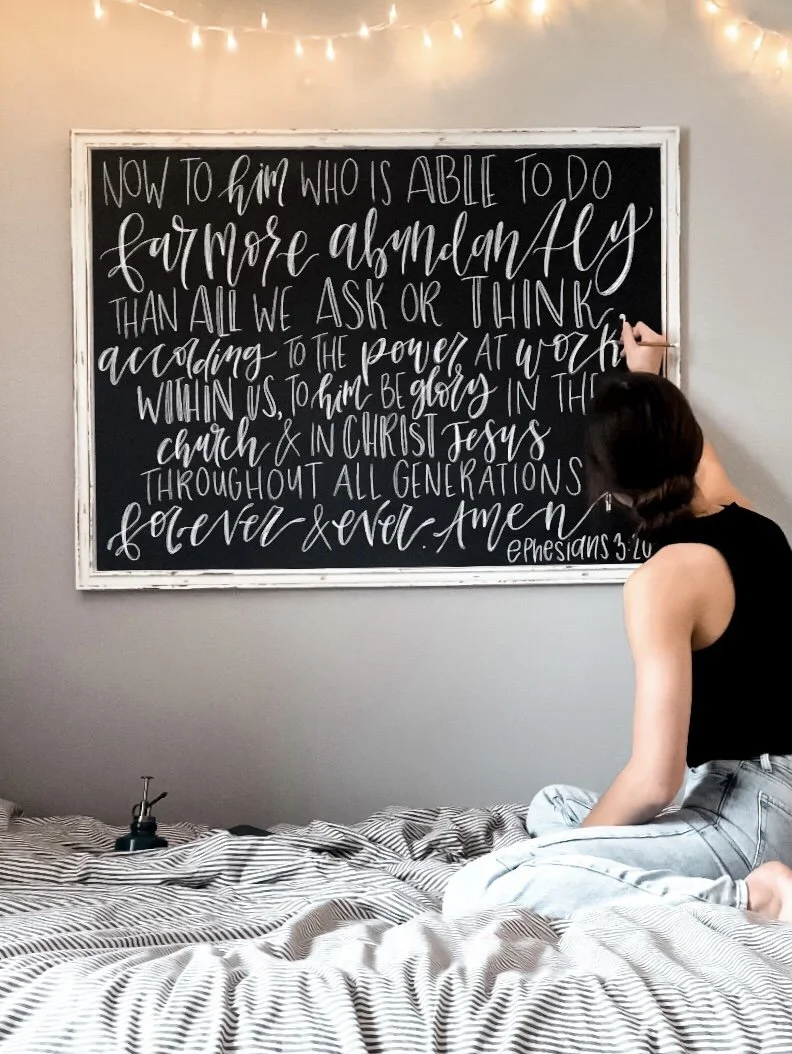 NOW TO him WHO IS ABLE TO DO
far more abundantly
THAN ALL WE ASK OR THINK,
according TO THE power AT work
WITHIN US, TO him BE glory IN THE
church & IN CHRIST Jesus
THROUGHOUT ALL GENERATIONS
forever & ever. Amen
ephesians 3:20